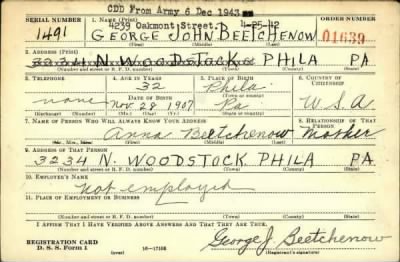 CDD From Army 6 Dec 1943
SERIAL NUMBER 1. NAME (Print) 4239 Oakmont Street 4-25-42 ORDER NUMBER
1491 GEORGE JOHN BEETCHENOW 01639
(First) (Middle) (Last)
2. ADDRESS (Print)
3234 N. WOODSTOCK PHILA PA
(Number and street or R. F. D. number) (Town) (County) (State)
3. TELEPHONE 4. AGE IN YEARS 5. PLACE OF BIRTH 6. COUNTRY OF CITIZENSHIP
none 32 Phila.
DATE OF BIRTH (Town or county)
Nov 28 1907 Pa U.S.A
(Exchange) (No.) (Mo.) (Day) (Yr.) (State or country)
7. NAME OF PERSON WHO WILL ALWAYS KNOW YOUR ADDRESS 8. RELATIONSHIP OF THAT PERSON
Anna Beetchenow Mother
(Mr., Mrs., Miss) (First) (Middle) (Last)
9. ADDRESS OF THAT PERSON
3234 N. WOODSTOCK PHILA PA.
(Number and street or R. F. D. number) (Town) (County) (State)
10. EMPLOYER'S NAME
Not employed
11. PLACE OF EMPLOYMENT OR BUSINESS
(Number and street or R. F. D. number) (Town) (County) (State)
I AFFIRM THAT I HAVE VERIFIED ABOVE ANSWERS AND THAT THEY ARE TRUE.
REGISTRATION CARD George J. Beetchenow
D. S. S. Form 1 (over) 16-17105 (Registrant's signature)